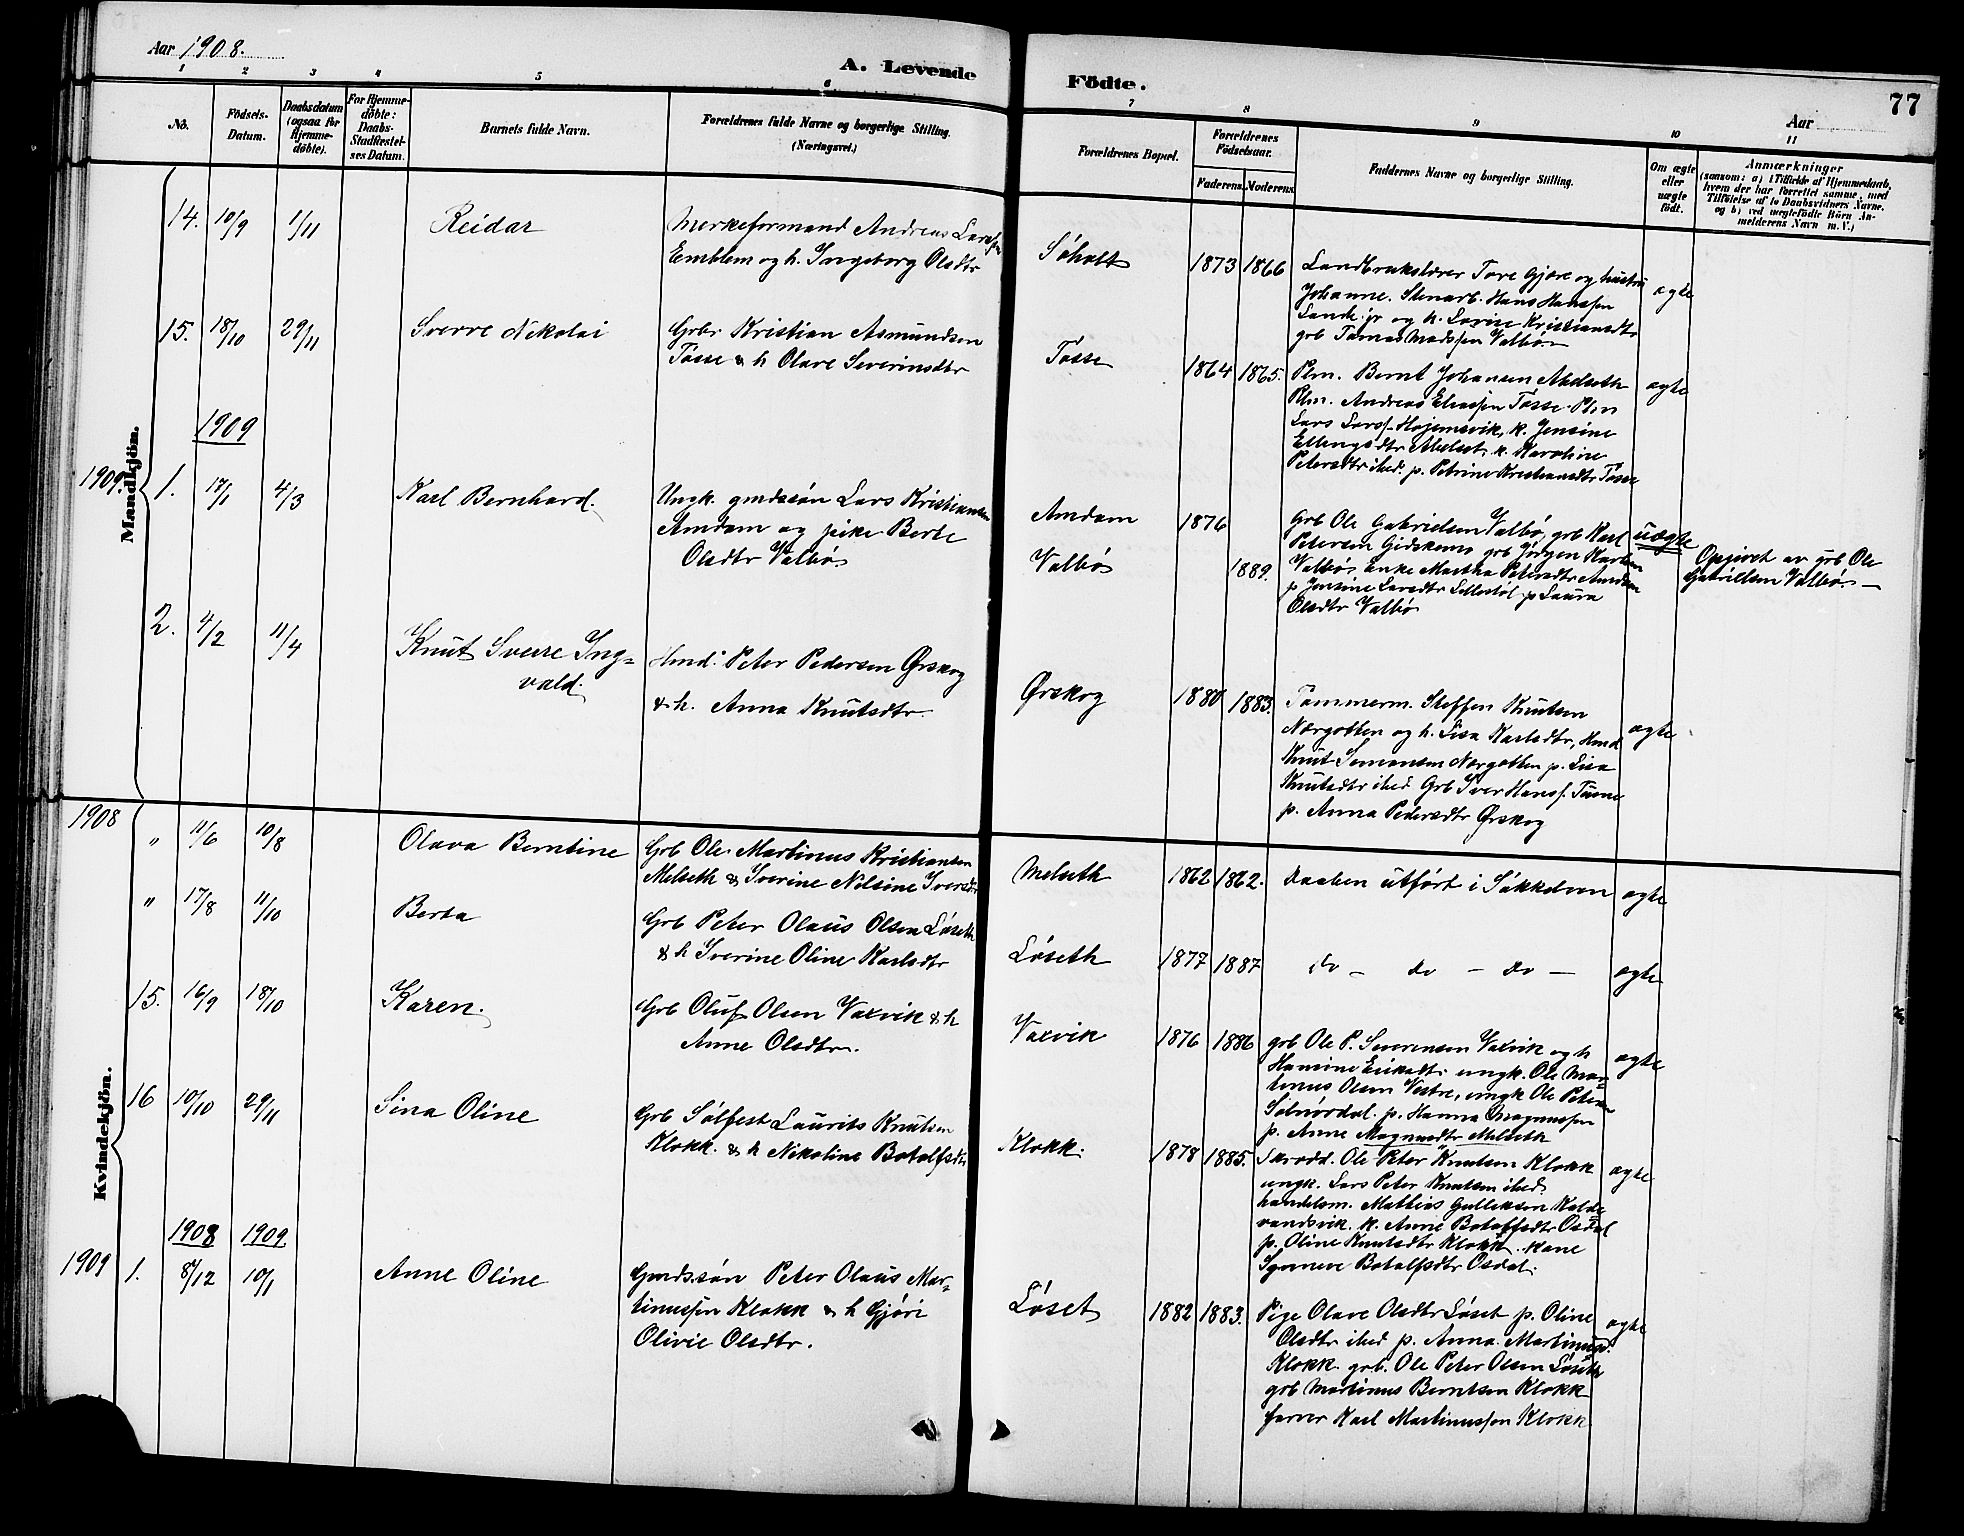 Aar 1908.
A. Levende
Födte.
77
Aar
1 2 3 4 5 6 7 8 9 10 11
No.
Födsels-
Datum.
Daabsdatum
(ogsaa for
Hjemme-
døbte).
For Hjemme-
døbte:
Daabs-
Stadfæstel-
ses Datum.
Barnets fulde Navn.
Forældrenes fulde Navne og borgerlige Stilling.
(Næringsvei.)
Forældrenes Bopæl.
Forældrenes
Födselsaar.
Faderens. Moderens.
Faddernes Navne og borgerlige Stilling.
Om ægte
eller
uægte
født.
Anmærkninger
(saasom: a) i Tilfælde af Hjemmedaab,
hvem der har forrettet samme, med
Tilføielse af to Daabsvidners Navne,
og b) ved uægtefødte Börn An-
melderens Navn m. V.)
Mandkjön.
14. 10/9 1/11 Reidar
Merkeformand Andreas Larssen
Emblem og h. Ingeborg Olsdtr
Søholt 1873 1866
Landbrukslærer Tore Gjøre og hustru
Johanne. Stenarb. Hans Hanssen
Lande jr og h. Lovise Kristiansdtr
grb Tomas Madssen Valbø
ægte
15. 18/10 29/11 Sverre Nikolai
Grbr Kristian Asmundsen
Tosse & h Olave Severinsdtr
Tosse 1864 1865.
Plm. Bernt Johansen Melseth
Plm. Andreas Eliassen Tosse. Plm
Lars Larss. Højemsvik, k. Jensine
Ellingsdtr Melset k. Karoline
Petersdtr ibid. p. Petrine Kristiansdtr Tosse
ægte
1909
1909. 1. 17/1 4/3 Karl Bernhard.
Ungk. gmdssøn Lars Kristiansen
Amdam og pike Berte
Olsdtr Valbø
Amdam 1876
Valbø 1889.
Grb Ole Gabrielsen Valbø, grb Karl
Petersen Gidskems grb Jörgen Karlsen
Valbø, Enke Martha Petersdtr Amdam
p Jensine Larsdtr Lillestøl p Laura
Olsdtr Valbø
uægte
Opgivet av grb Ole
Gabrielsen Valbø. —
2. 4/2 11/4 Knut Sverre Ing=
vald.
Hmd. Peter Pedersen Ørskog
& h. Anna Knutsdtr.
Ørskog 1880 1883.
Tømmerm. Steffen Knutsen
Nørgotten og h. Lisa Karlsdtr, Hmd
Knut Simonsen Nørgotten p. Lisa
Knutsdtr ibid Grb Iver Hanss. Tusne
p. Anna Pedersdtr Ørskog
ægte
Kvindekjön.
1908 " 11/6 10/8 Olava Berntine
Grb Ole Martinus Kristiansen
Melseth & Iverine Nilsine Iversdtr
Melseth 1862 1862. Daaben utført i Søkkelven ægte
" 17/8 11/10 Berta
Grb Peter Olaus Olsen Løseth
& h Iverine Oline Karlsdtr
Løseth 1877 1887 do — do — do — ægte
15. 16/9 18/10 Karen.
Grb Oluf Olsen Vaxvik & h
Anne Olsdtr.
Vaxvik 1876 1886
grb Ole P. Severensen Vaxvik og h
Hansine Eriksdtr. ungk. Ole Mar-
tinus Olsen Vestre, ungk Ole Peter
Sølnørdal. p. Hanna Magnussen
p. Anne Magnusdtr Melseth
ægte
16 10/10 29/11 Sina Oline
Grb Sølfest Laurits Knutsen
Klokk. & h Nikoline Botolfsdtr
Klokk. 1878 1885.
Skrædd. Ole Peter Knutsen Klokk
ungk. Lars Peter Knutsen ibid.
handelsm. Mathias Gulliksen Kalde
vandsvik. k. Anne Botolfsdtr Osdal
p. Oline Knutsdtr Klokk. Kone
Synneve Botolfsdtr Osdal.
ægte
1908 1909.
1909 1. 8/12 10/1 Anne Oline
Gmdssøn Peter Olaus Mar=
tinussen Klokk & h Gjøri
Olivie Olsdtr.
Løset 1882 1883.
Pige Olave Olsdtr Løset p. Oline
Olsdtr ibid p. Anna Martinusd.
Klokk. grb. Ole Peter Olsen Løseth
grb Martinus Berntsen Klokk
farver Karl Martinussen Klokk
ægte